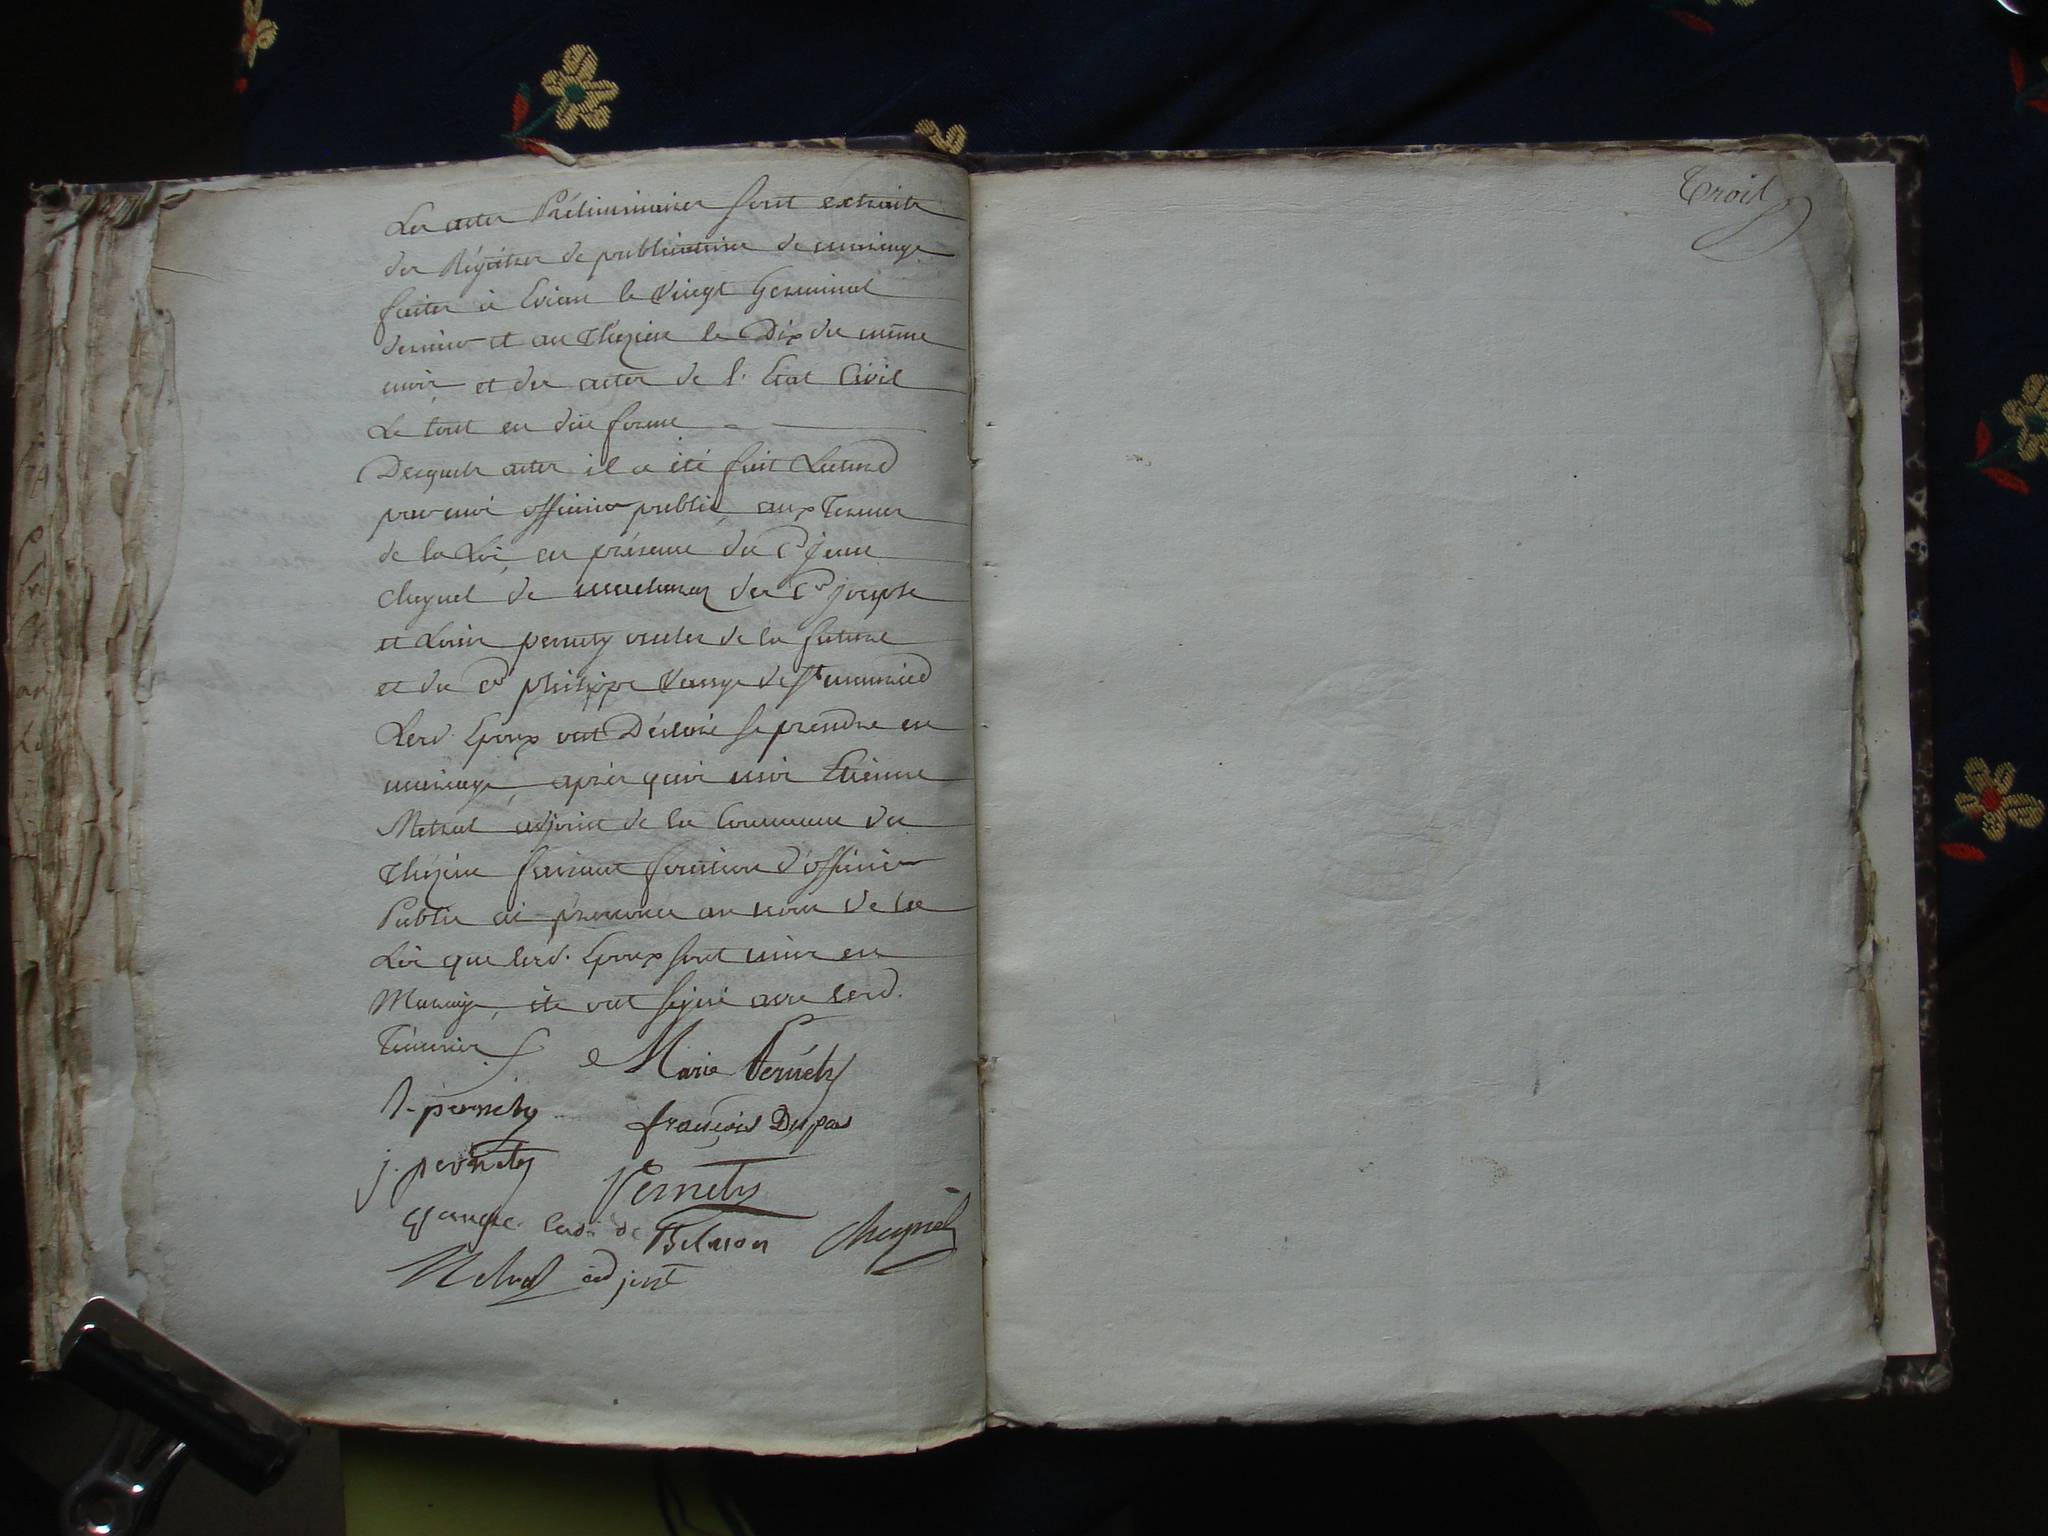 Les actes Préliminaires sont extraits
des Régistres de publications de mariage
faites à Evian le Vingt Germinal
dernier et au Thezieu le Dix du même
mois et des actes de l'Etat Civil
Le tout en düe forme
Desquels actes il a été fait Lecture
par moi officier public, aux Termes
de la Loi, en présence du Cn jean
Cheynel de des Cns joseph
et Louis pernety oncles de la future
et du Cn philippe de St
Lesd. Epoux ont Déclaré se prendre en
mariage, après quoi moi Etienne
Metral adjoint de la Commune du
Thézieu faisant fonction d'officier
Public ai prononcé au nom de la
Loi que lesd. Epoux sont unis en
Mariage, et ont signé avec lesd.
Témoins
Marie Pernety
L. pernety
françois Dupas
j. pernety
Pernety
de Belmon Cheynel
Metral adjoint
Trois